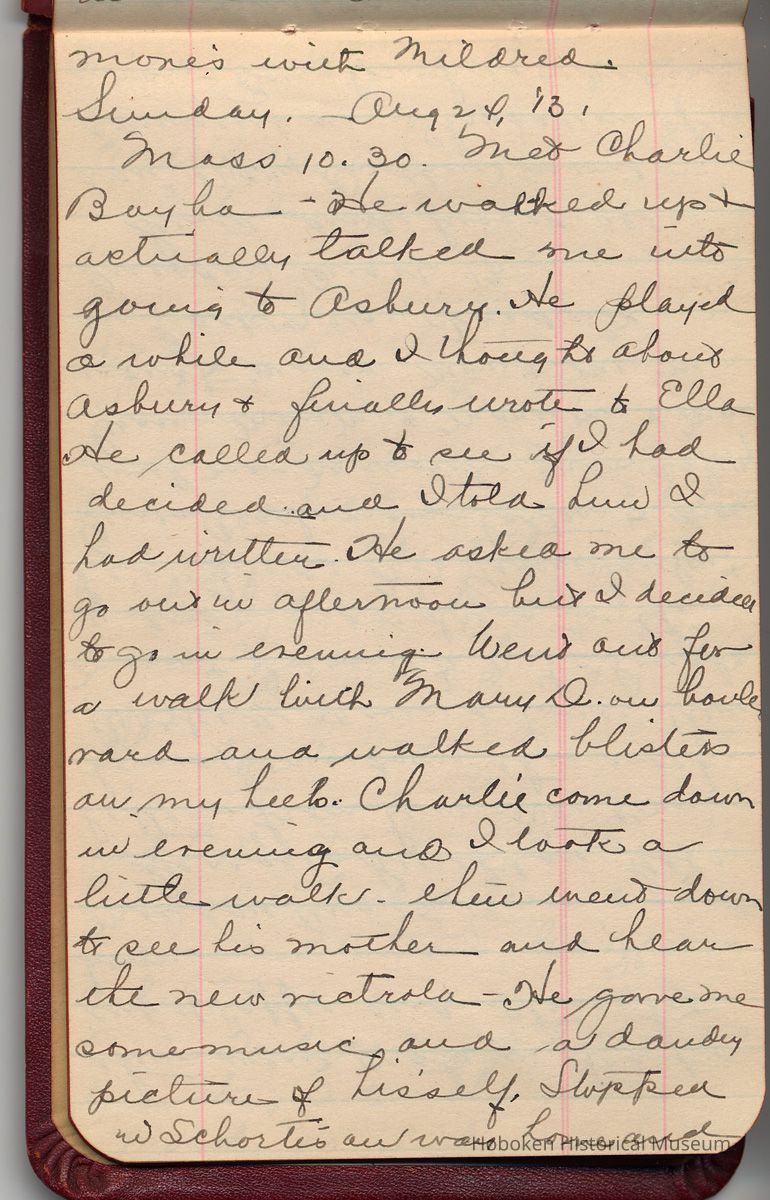 movies with Mildred.
Sunday. Aug 24, '13.
Mass 10.30. Met Charlie
Bayha - He walked up &
actually talked me into
going to Asbury. He played
a while and I thought about
Asbury & finally wrote to Ella
He called up to see if I had
decided and I told him I
had written. He asked me to
go out in afternoon but I decided
to go in evening. Went out for
a walk with Mary D. on boule
vard and walked blisters
on my heels. Charlie come down
in evening and I took a
little walk - then went down
to see his mother and hear
the new victrola - He gave me
some music and a dandy
picture of hisself. Stopped
in Schorties on way home and
Hoboken Historical Museum